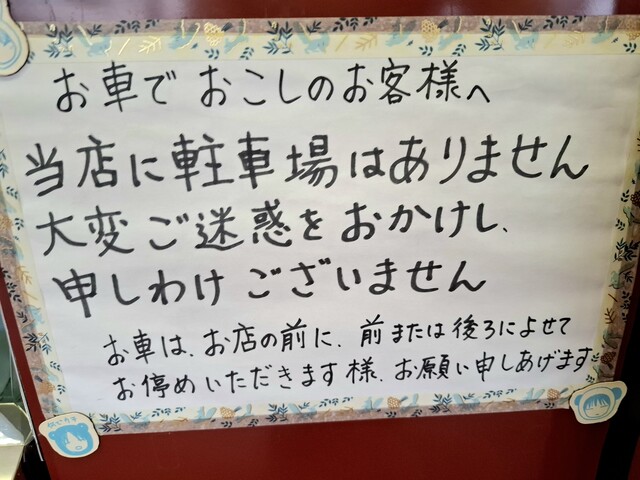 お車で おこしのお客様へ
当店に駐車場はありません
大変ご迷惑をおかけし、
申しわけございません
お車は、お店の前に、前または後ろによせて
お停めいただきます様、お願い申しあげます